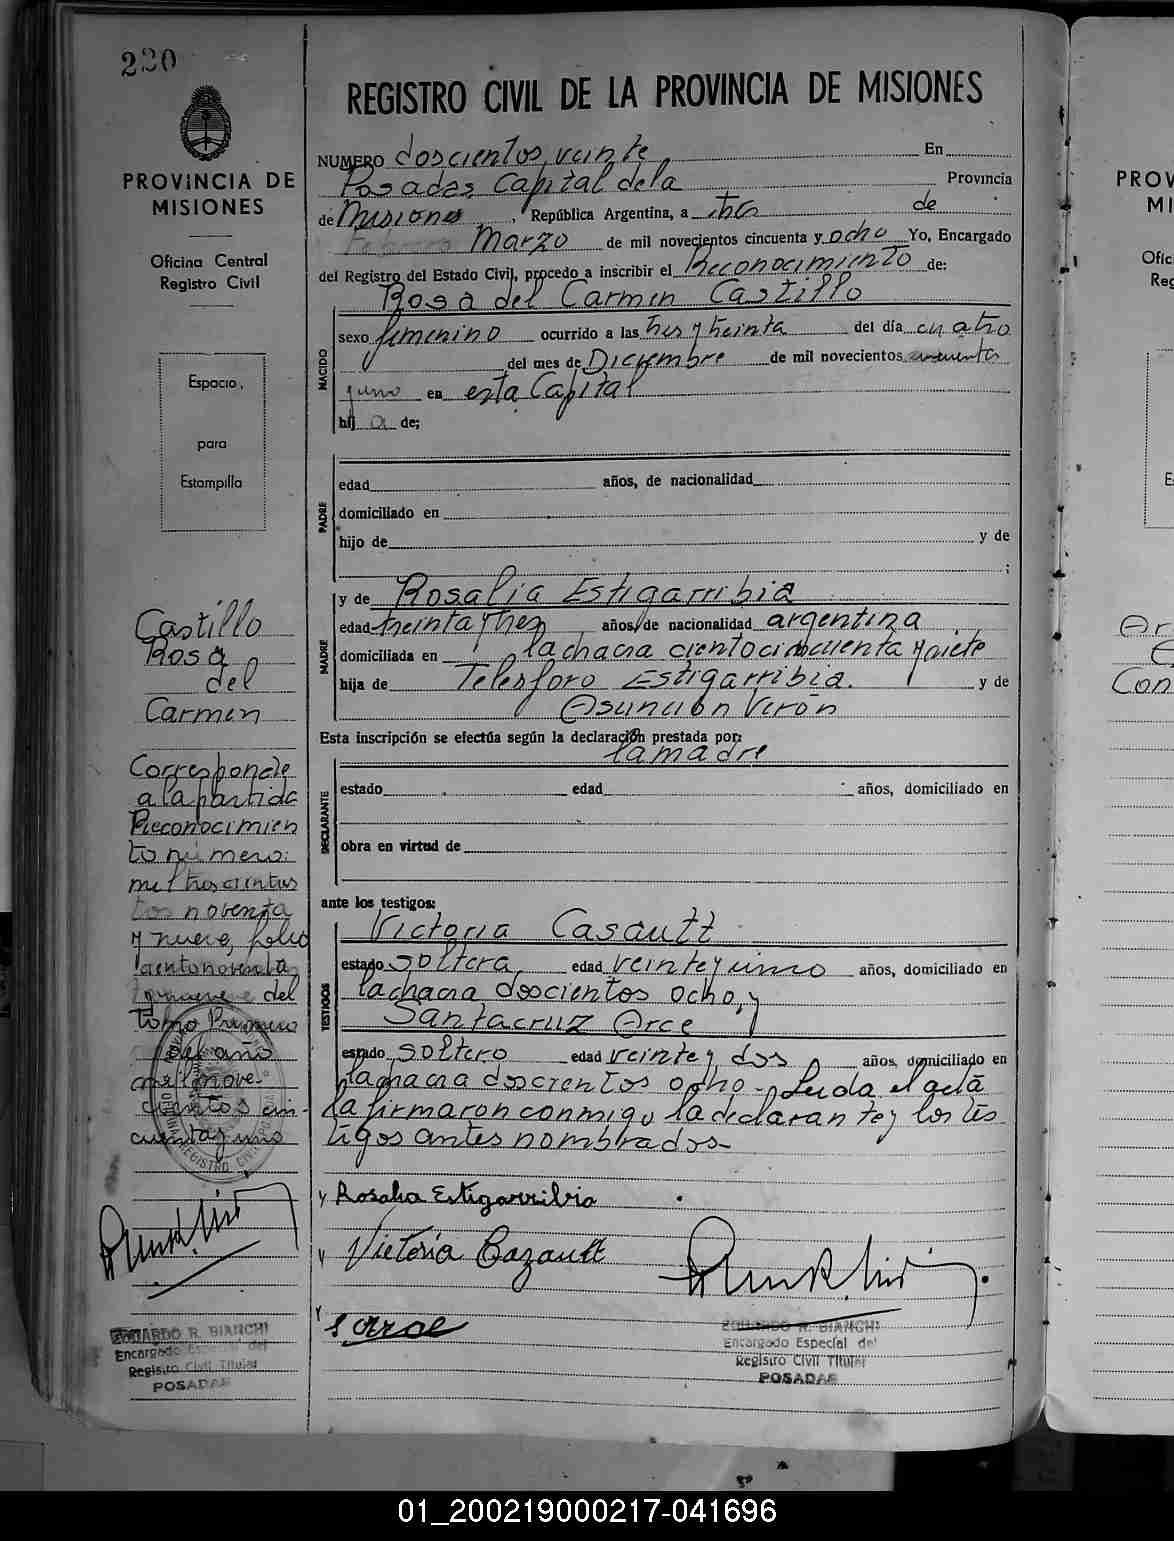 220
PROVINCIA DE
MISIONES
Oficina Central
Registro Civil
Espacio,
para
Estampilla
Castillo
Rosa
del
Carmen
Corresponde
a la partida
Reconocimien
to número:
mil trescientos
noventa
y nueve, folio
ciento noventa
y nueve del
Tomo Primero
del año
mil nove-
cientos cin-
cuenta y uno
EDUARDO R. BIANCHI
Encargado Especial del
Registro Civil Titular
POSADAS
REGISTRO CIVIL DE LA PROVINCIA DE MISIONES
NUMERO doscientos veinte En
Posadas, Capital de la Provincia
de Misiones, República Argentina, a tres de
Marzo de mil novecientos cincuenta y ocho Yo, Encargado
del Registro del Estado Civil, procedo a inscribir el Reconocimiento de:
Rosa del Carmen Castillo
NACIDO
sexo femenino ocurrido a las tres y treinta del día cuatro
del mes de Diciembre de mil novecientos cincuenta
y uno en esta Capital
hij a de;
PADRE
edad años, de nacionalidad
domiciliado en
hijo de y de
;
MADRE
y de Rosalia Estigarribia
edad treinta y tres años, de nacionalidad argentina
domiciliada en la chacra ciento cincuenta y siete
hija de Telesforo Estigarribia. y de
Asunción Verón
Esta inscripción se efectúa según la declaración prestada por:
la madre
DECLARANTE
estado edad años, domiciliado en
obra en virtud de
ante los testigos:
TESTIGOS
Victoria Casautt
estado soltera edad veinte y uno años, domiciliado en
la chacra doscientos ocho, y
Santacruz Arce
estado soltero edad veinte y dos años, domiciliado en
la chacra doscientos ocho - Leida el acta
la firmaron conmigo la declarante y los tes
tigos antes nombrados-
Rosalia Estigarribia
Victoria Cazautt
S. Arce
EDUARDO R. BIANCHI
Encargado Especial del
Registro Civil Titular
POSADAS
PROV
MI
Ofic
Reg
E
Ar
Con
01_200219000217-041696